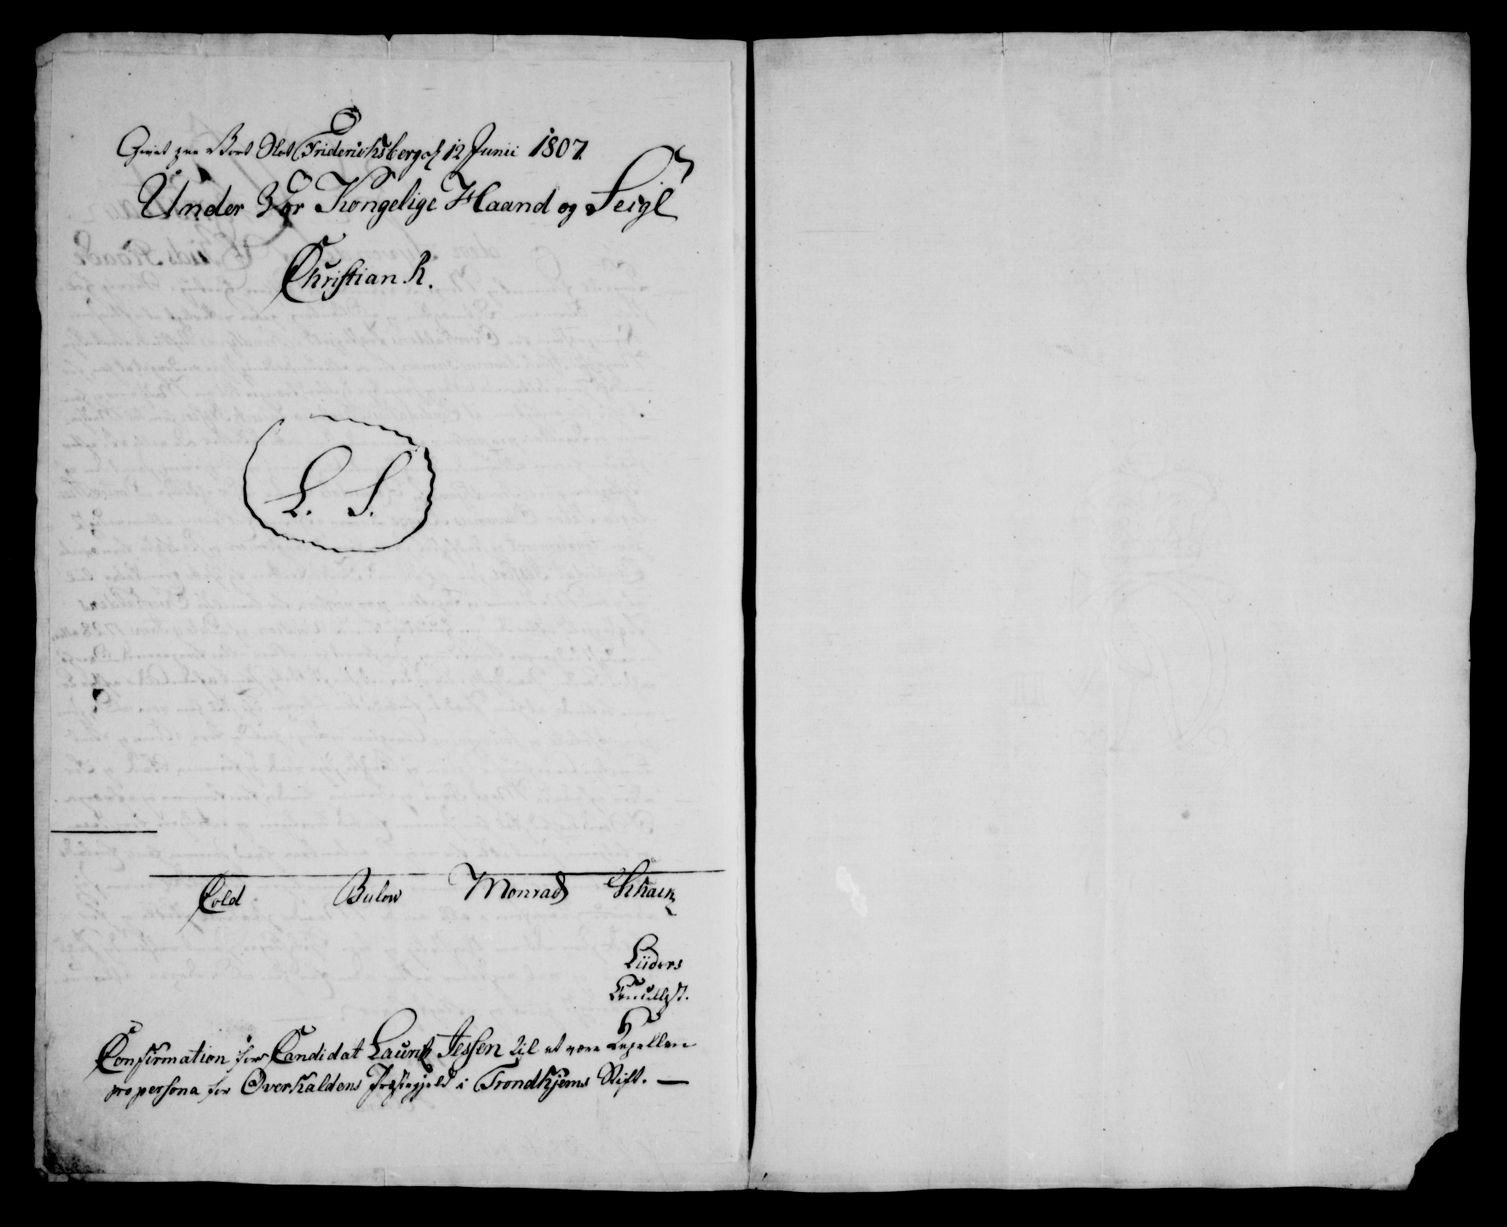 Givet paa Vort Slot Friderichsberg d 12 Junii 1807.
Under Vor Kongelige Haand og Seigl
Christian R.
L. S.
Cold Bulow Monrad Schack
Lüders
Confirmation for Candidat Lauritz Jessen til at være Capellan
pro persona for Overhaldens Præstegjeld i Trondhjems Stift. —